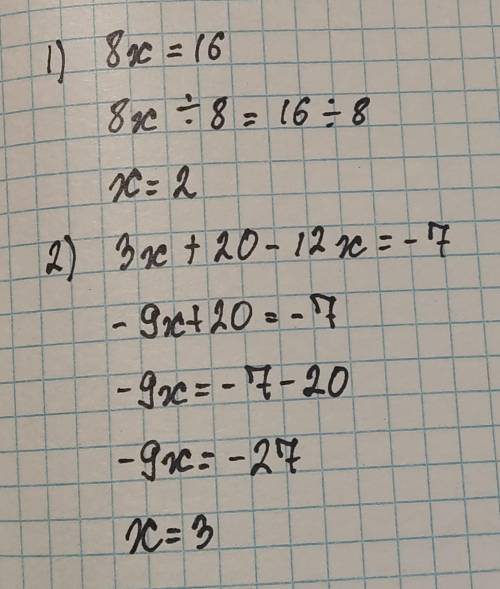 1) 8x = 16
8x ÷ 8 = 16 ÷ 8
x = 2
2) 3x + 20 - 12x = -7
-9x + 20 = -7
-9x = -7 - 20
-9x = -27
x = 3